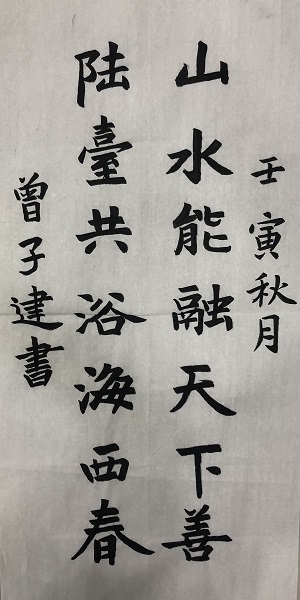 壬寅秋月
山水能融天下善
陆臺共浴海西春
曾子建書